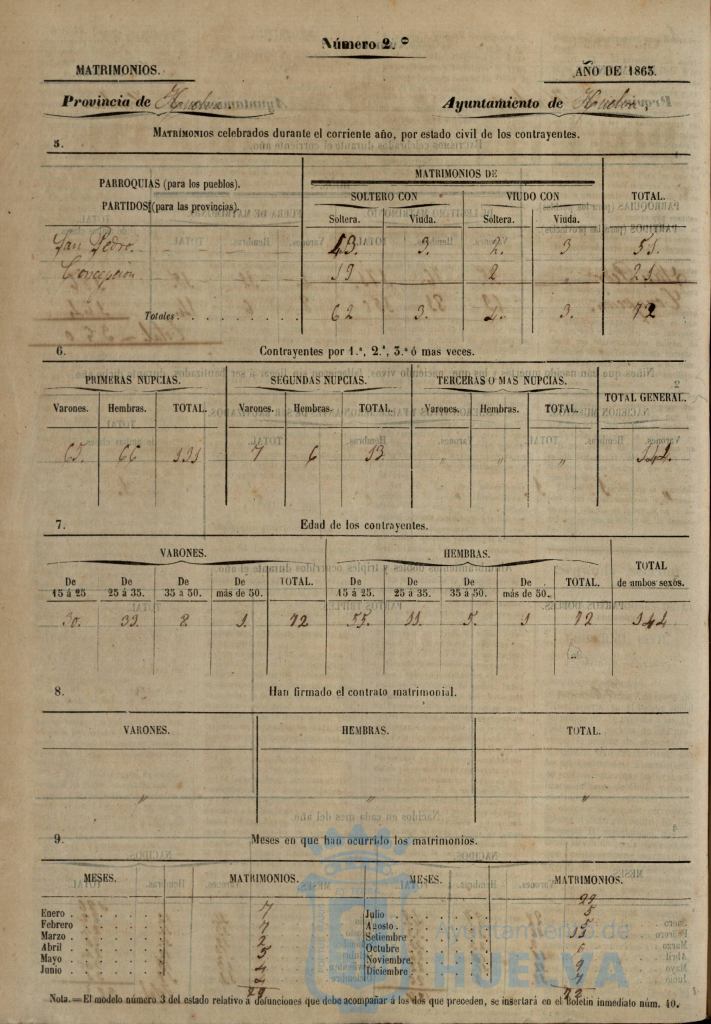 Número 2.º
MATRIMONIOS.
AÑO DE 1863.
Provincia de Huelva
Ayuntamiento de Huelva,
MATRIMONIOS celebrados durante el corriente año, por estado civil de los contrayentes.
5.
PARROQUIAS (para los pueblos).
PARTIDOS (para las provincias).
MATRIMONIOS DE
SOLTERO CON
VIUDO CON
TOTAL.
Soltera. Viuda. Soltera. Viuda.
San Pedro. 43. 3. 2. 3 51
Concepcion 19 2 21
Totales. 62 3. 4. 3. 72
6. Contrayentes por 1.ª, 2.ª, 3.ª ó mas veces.
PRIMERAS NUPCIAS. SEGUNDAS NUPCIAS. TERCERAS O MAS NUPCIAS.
TOTAL GENERAL.
Varones. Hembras. TOTAL. Varones. Hembras. TOTAL. Varones. Hembras. TOTAL.
65. 66 131 7 6 13 " " " 144.
7. Edad de los contrayentes.
VARONES. HEMBRAS.
TOTAL
de ambos sexos.
De 15 á 25 De 25 á 35. De 35 á 50. De más de 50. TOTAL. De 15 á 25. De 25 á 35. De 35 á 50. De más de 50. TOTAL.
30. 33. 8 1. 72 55. 11. 5. 1 72 144
8. Han firmado el contrato matrimonial.
VARONES. HEMBRAS. TOTAL.
" " "
9. Meses en que han ocurrido los matrimonios.
MESES. MATRIMONIOS. MESES. MATRIMONIOS.
Enero . 7 Julio 5
Febrero 7 Agosto.
Marzo . 2 Setiembre 13
Abril 5 Octubre 6
Mayo 4 Noviembre. 9
Junio . Diciembre. 7
72
Nota.=El modelo número 3 del estado relativo á defunciones que debe acompañar á los dos que preceden, se insertará en el Boletin inmediato núm. 40.
Ayuntamiento de
HUELVA